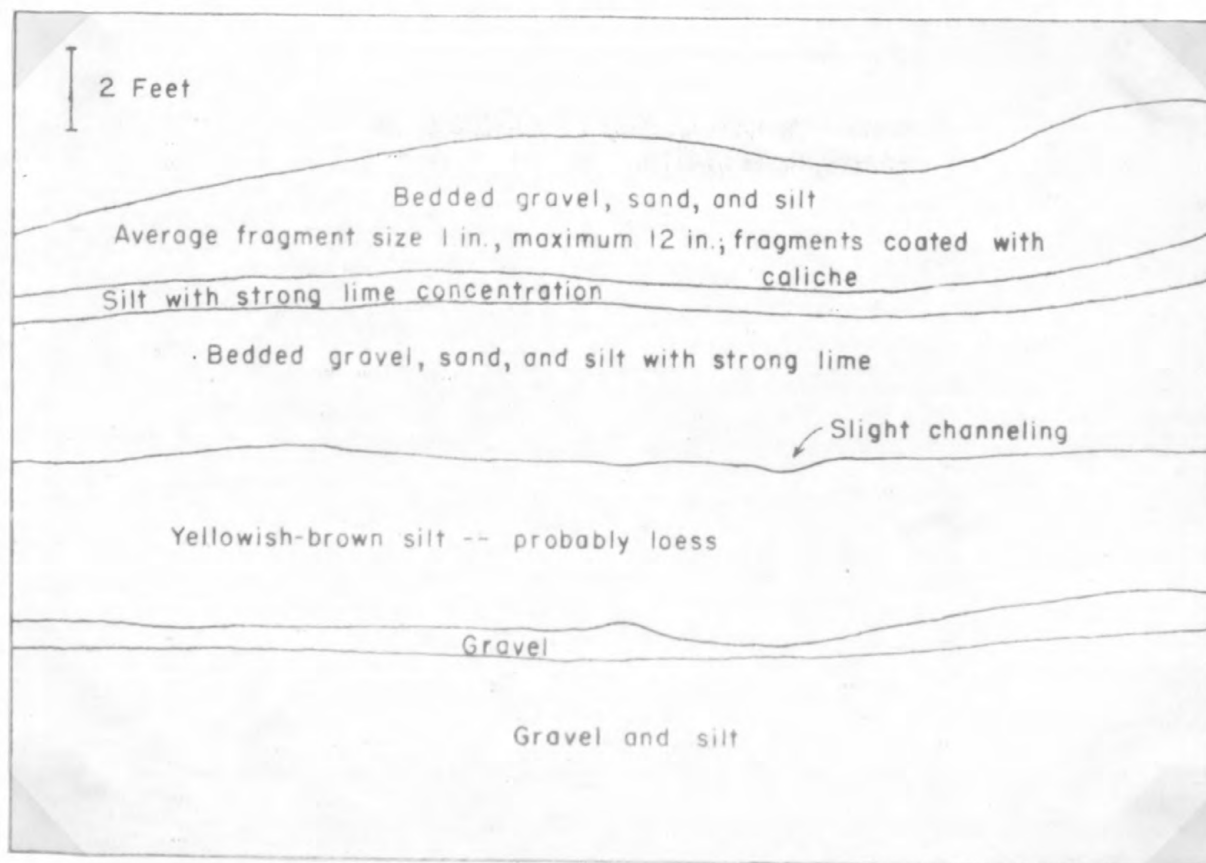 2 Feet
Bedded gravel, sand, and silt
Average fragment size 1 in., maximum 12 in.; fragments coated with
caliche
Silt with strong lime concentration
Bedded gravel, sand, and silt with strong lime
Slight channeling
Yellowish-brown silt -- probably loess
Gravel
Gravel and silt